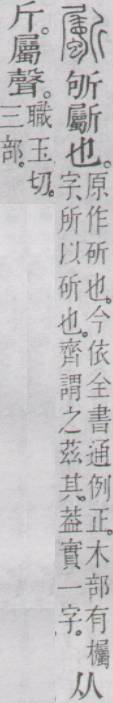 斸 斪斸也。
原作斫也。今依全書通例正。木部有欘
字。所以斫也。齊謂之茲其。葢實一字。
从
斤。屬聲。
職玉切。
三部。